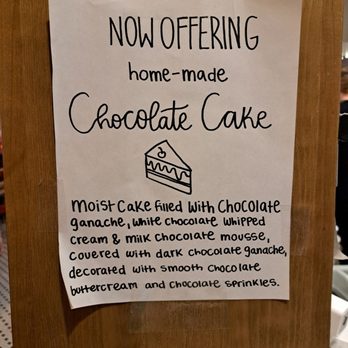 NOW OFFERING
home-made
Chocolate Cake
Moist Cake filled with Chocolate
ganache, white chocolate whipped
cream & milk chocolate mousse,
covered with dark chocolate ganache,
decorated with smooth chocolate
buttercream and chocolate sprinkles.